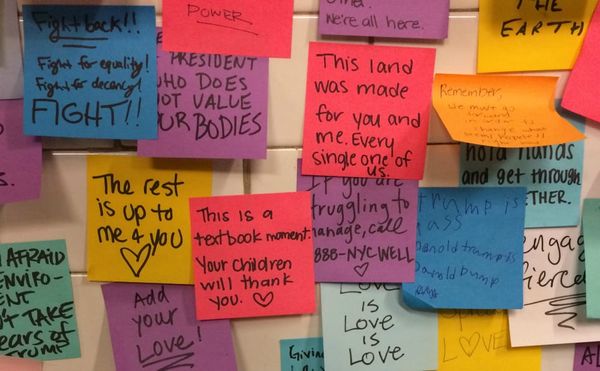 Fight back!!
Fight for equality!
Fight for decency!
FIGHT!!
POWER
We're all here.
THE
EARTH
PRESIDENT
WHO DOES
NOT VALUE
OUR BODIES
This land
was made
for you and
me. Every
single one of
us.
Remember,
we must go
forward
hold hands
and get through
The rest
is up to
me & you
This is a
textbook moment.
Your children
will thank
you.
If you are
struggling to
manage, call
888-NYCWELL
Trump is
ass
Donald trump
Donald dump
AFRAID
TAKE
Add
your
Love!
LOVE
is
Love
is
Love
LOVE